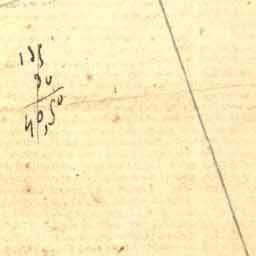 135
30
40,50